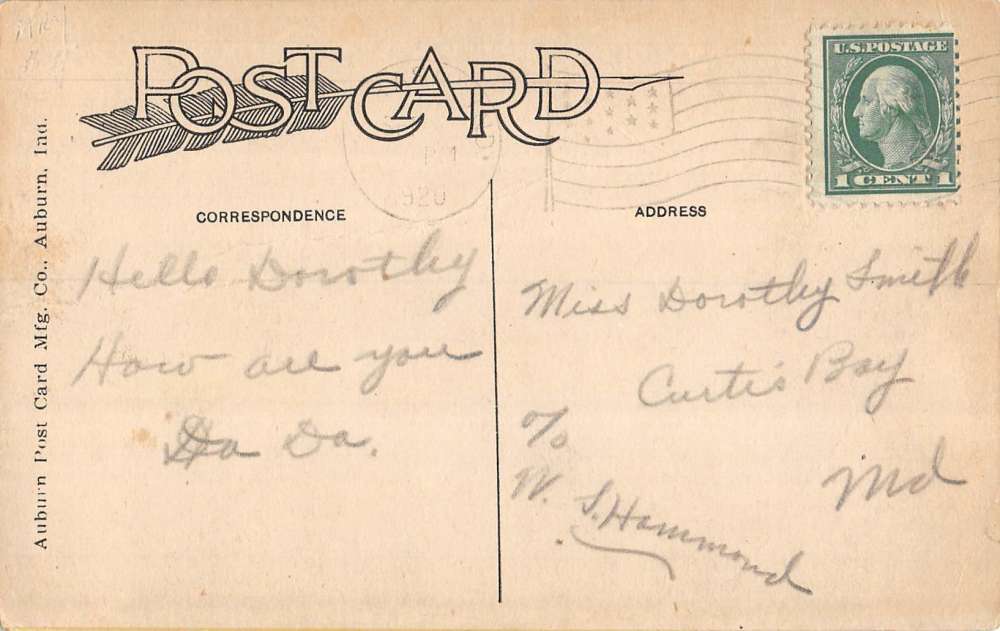 POST CARD
U.S. POSTAGE
1 CENT 1
1920
CORRESPONDENCE
ADDRESS
Auburn Post Card Mfg. Co., Auburn, Ind.
Hello Dorothy
How are you
Da Da.
Miss Dorothy Smith
Curtis Bay
Md
c/o
W. S. Hammond